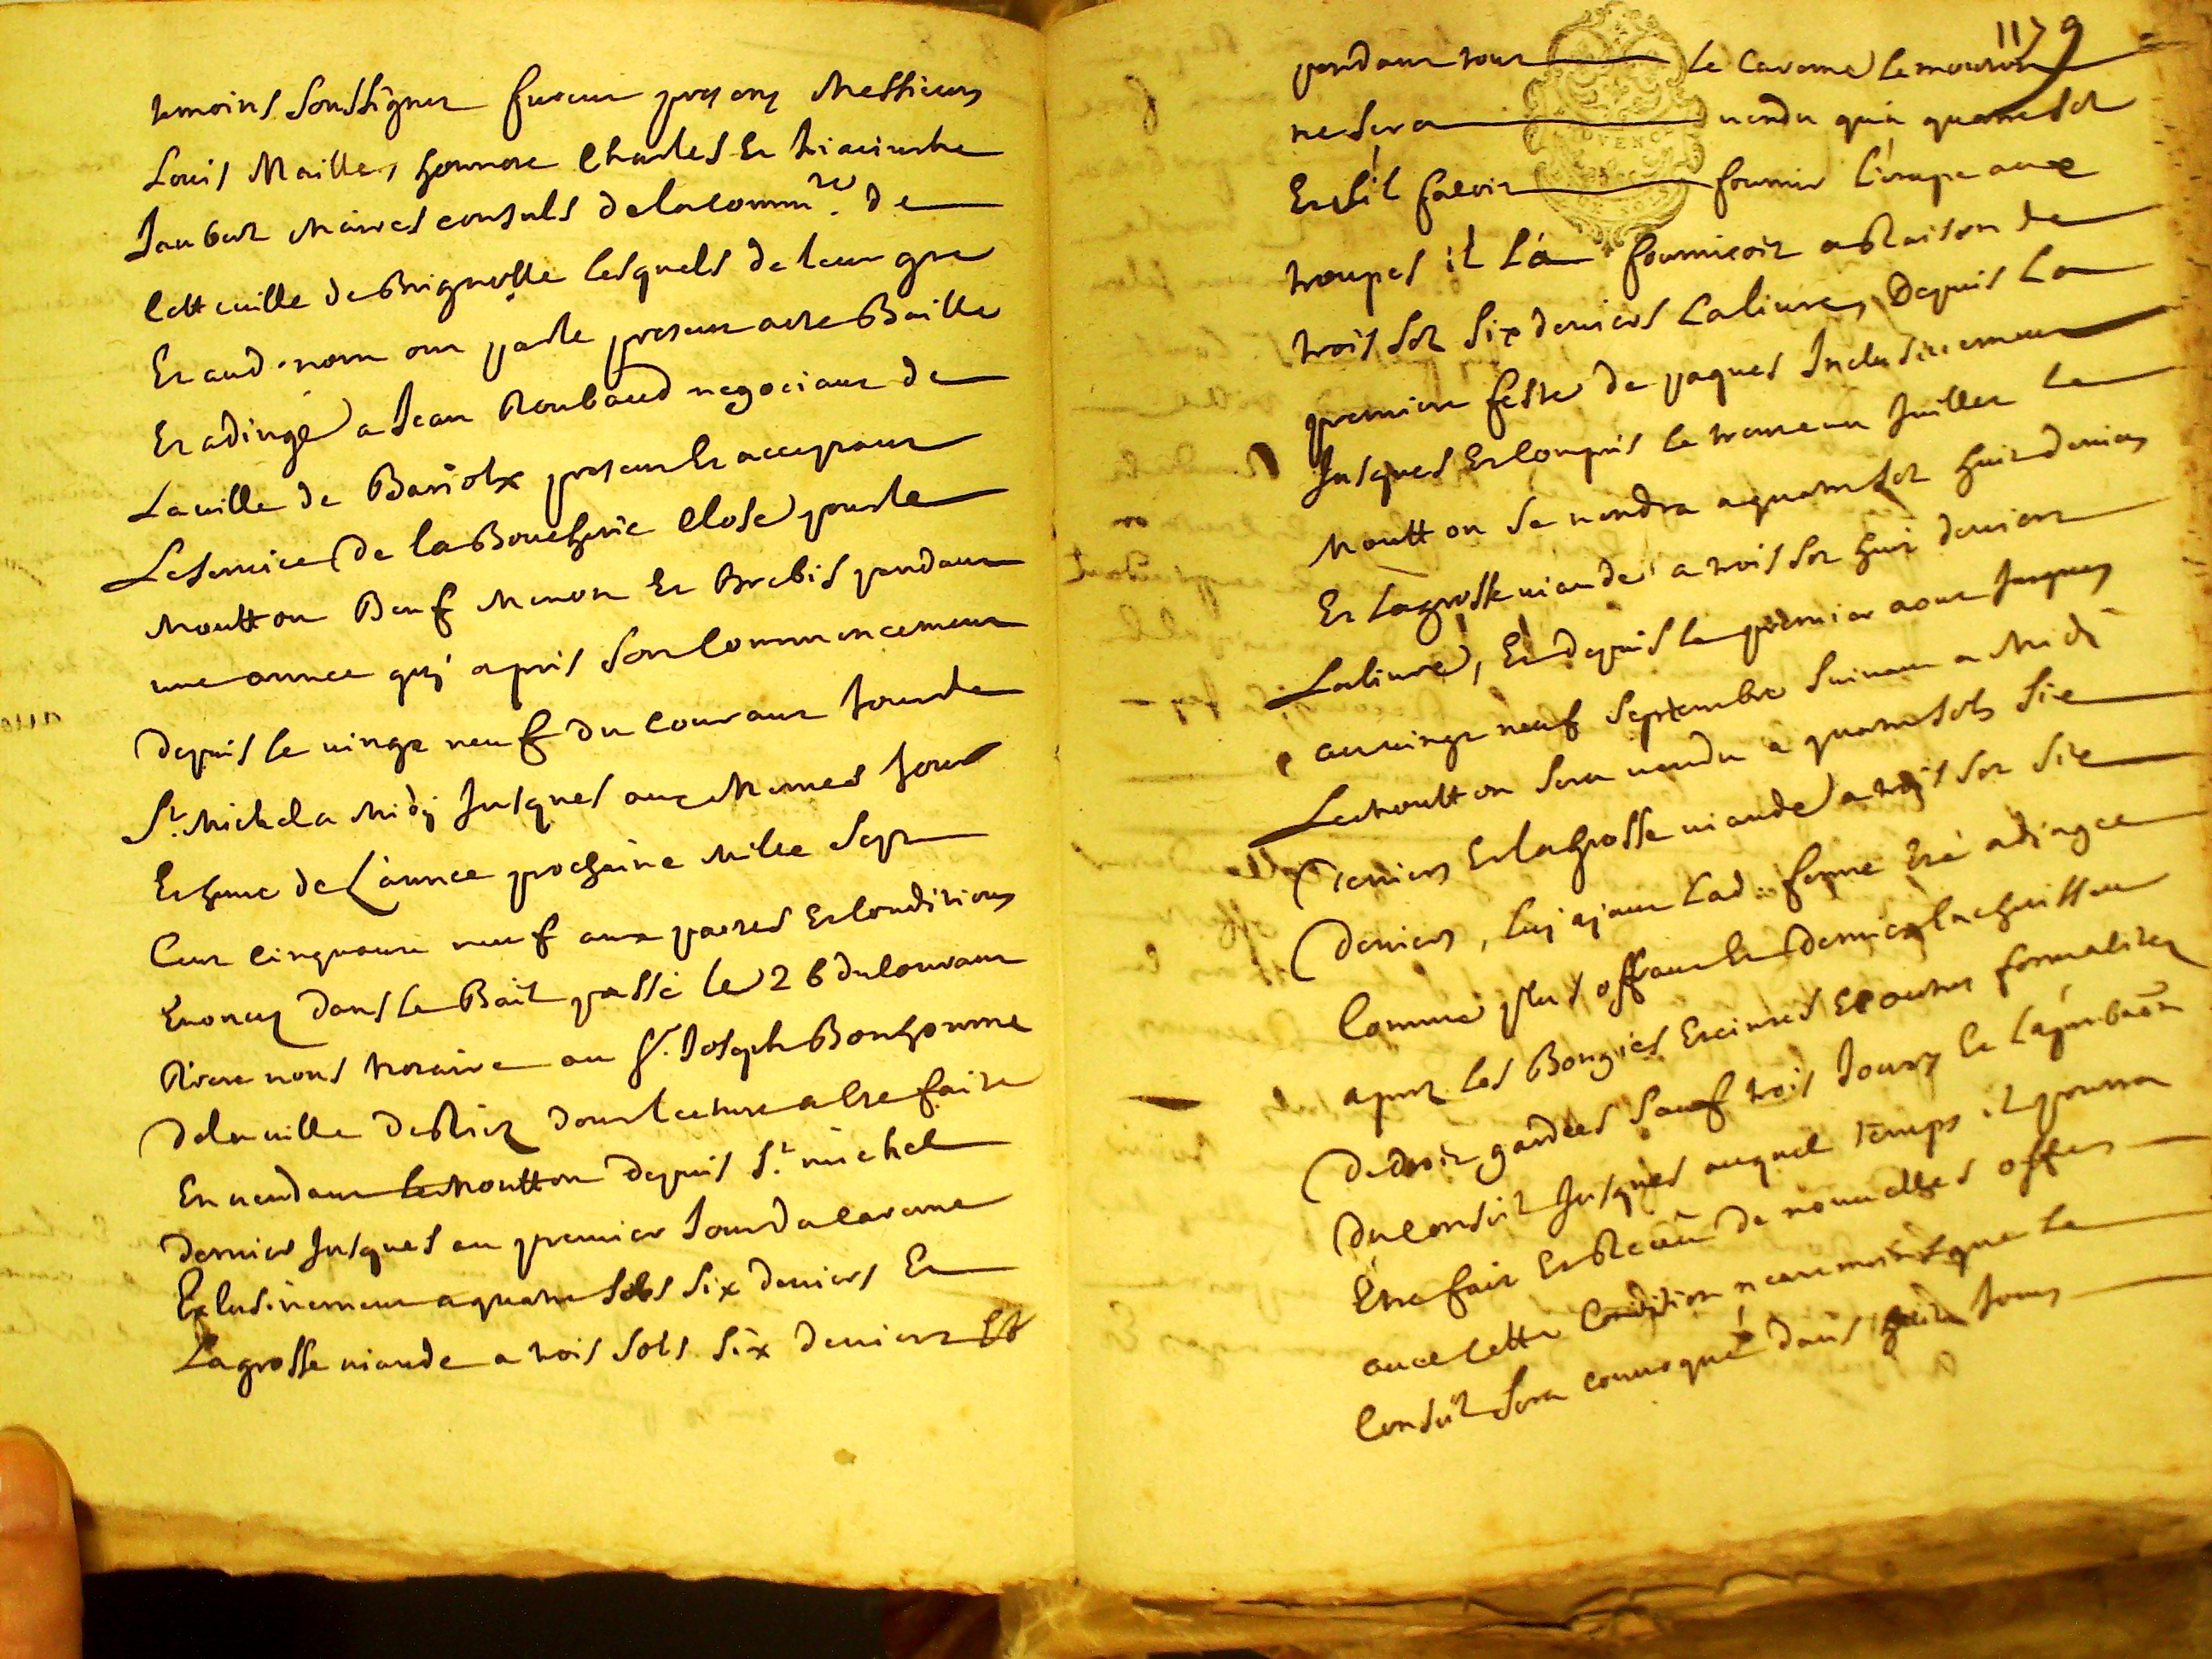 temoins soussignez furent presens Messieurs
Louis Maille, honnore Charles Et hiacinthe
Jaubert Maires consuls de la comm.té de
Cette ville de Brignolle lesquels de leur gre
Et aud. nom ont parle present acte Baille
Et adiugé a Jean Roubaud negociant de
La ville de Bariols present Et acceptant
Le service de la Boucherie close pour le
Moutton Beuf Menon Et Brebis pendant
une annee quj a pris son commencement
depuis le vingt neuf du courant Jour de
St. Michel a Midj Jusques aux Memes Jour
Et heure de L'annee prochaine Mille sept
Cent cinquante neuf aux pactes Et conditions
Enoncez dans le Bail passé le 26 du courant
Riere nous Notaire au Sr. Joseph Bonhomme
de la ville de Riez dont lecture a Esté faite
En vendant le Moutton depuis St. michel
dernier Jusques au premier Jour de careme
Exlusivement a quatre sols six deniers Et
La grosse viande a trois sols six deniers Et
1179
pendant tout le Careme le mouton
ne sera vendu qu'a quatre sol
Et s'il faloit fournir L'etape aux
troupes il La fourniroit a Raison de
trois sol six deniers La livre, Depuis La
premiere feste de paques Inclusivement
Jusques Et compris le trente un Juillet Le
Moutton se vendra a quatre sol huit deniers
Et La grosse viande a trois sol huit deniers
La livre, Et depuis le premier aout Jusques
au vingt neuf Septembre suivant a Midi
Le Moutton sera vendu a quatre sols six
deniers Et la Grosse viande a trois sol six
deniers, luj ajant Lad. ferme Eté adiugee
Comme plus offrant Et dernier Encherisseur
apres les Bougies Eteintes Et autres formalitez
de droit gardées sauf trois Jours Et L'aprobaõn
du conseil Jusques auquel Temps il pourra
Etre fait Et Receu de nouvelles offres
avec Cette Condition neantmoins que le
Conseil sera convoqué dans huit Jours